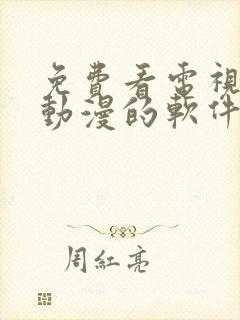 免費看電視
動漫的軟件
周紅亮